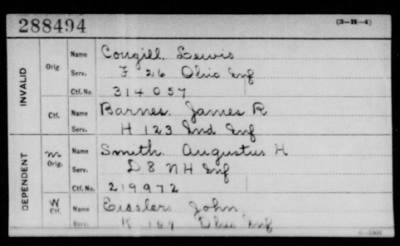 288494
(3-B-4)
INVALID
Orig. Name Cowgill, Lewis
Serv. F 26 Ohio Inf
Ctf. No. 314057
Ctf. Name Barnes, James R
Serv. H 123 Ind Inf
DEPENDENT
M Orig. Name Smith, Augustus H
Serv. D 8 NH Inf
Ctf. No. 219972
W Ctf. Name Eissler, John
Serv. K Ohio Inf